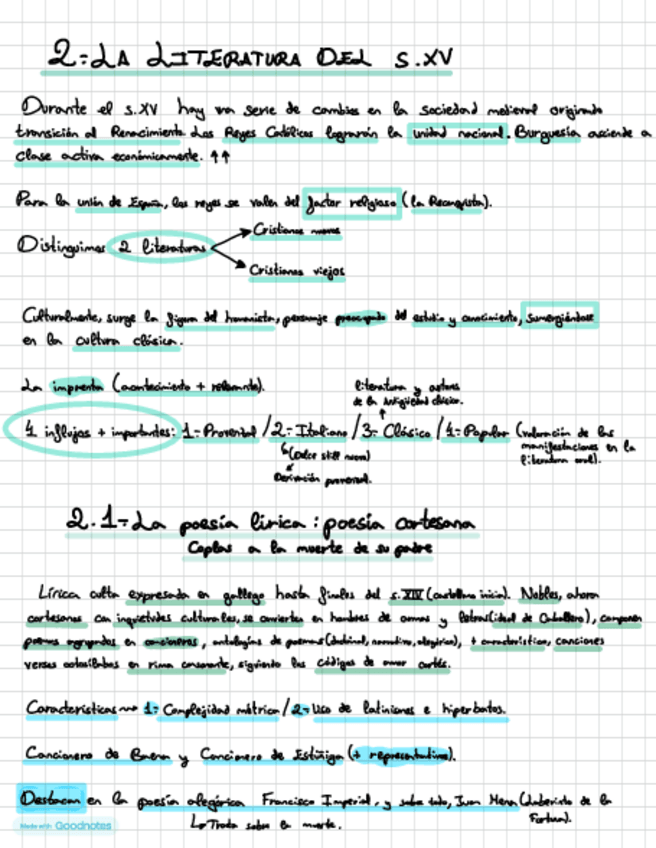 2.- LA LITERATURA DEL S.XV
Durante el s.XV hay una serie de cambios en la sociedad medieval originando
transición al Renacimiento. Los Reyes Católicos lograrán la unidad nacional. Burguesía asciende a
clase activa económicamente. ↑↑
Para la unión de España, los reyes se valen del factor religioso (la Reconquista).
Distinguimos 2 literaturas
Cristianos nuevos
Cristianos viejos
Culturalmente, surge la figura del humanista, personaje preocupado del estudio y conocimiento, sumergiéndose
en la cultura clásica.
La imprenta (acontecimiento + relevante).
literatura y autores
de la Antigüedad clásica.
4 influjos + importantes: 1.- Provenzal / 2.- Italiano / 3.- Clásico / 4.- Popular (valoración de las
manifestaciones en la
literatura oral).
(Dolce stil novo)
Derivación provenzal.
2.1.- La poesía lírica: poesía cortesana
Coplas a la muerte de su padre
Lírica culta expresada en gallego hasta finales del s.XIV (castellano inicio). Nobles, ahora
cortesanos con inquietudes culturales, se convierten en hombres de armas y letras (ideal de Caballero), componen
poemas agrupados en cancioneros, antologías de poemas (doctrinal, narrativo, alegórico), + característico, canciones
versos octosílabos en rima consonante, siguiendo los códigos de amor cortés.
Características 1.- Complejidad métrica / 2.- Uso de latinismos e hipérbatos.
Cancionero de Baena y Cancionero de Estúñiga (+ representativos).
Destacan en la poesía alegórica Francisco Imperial, y sobre todo, Juan Mena (Laberinto de la
Fortuna).
Trata sobre la muerte.
Made with Goodnotes